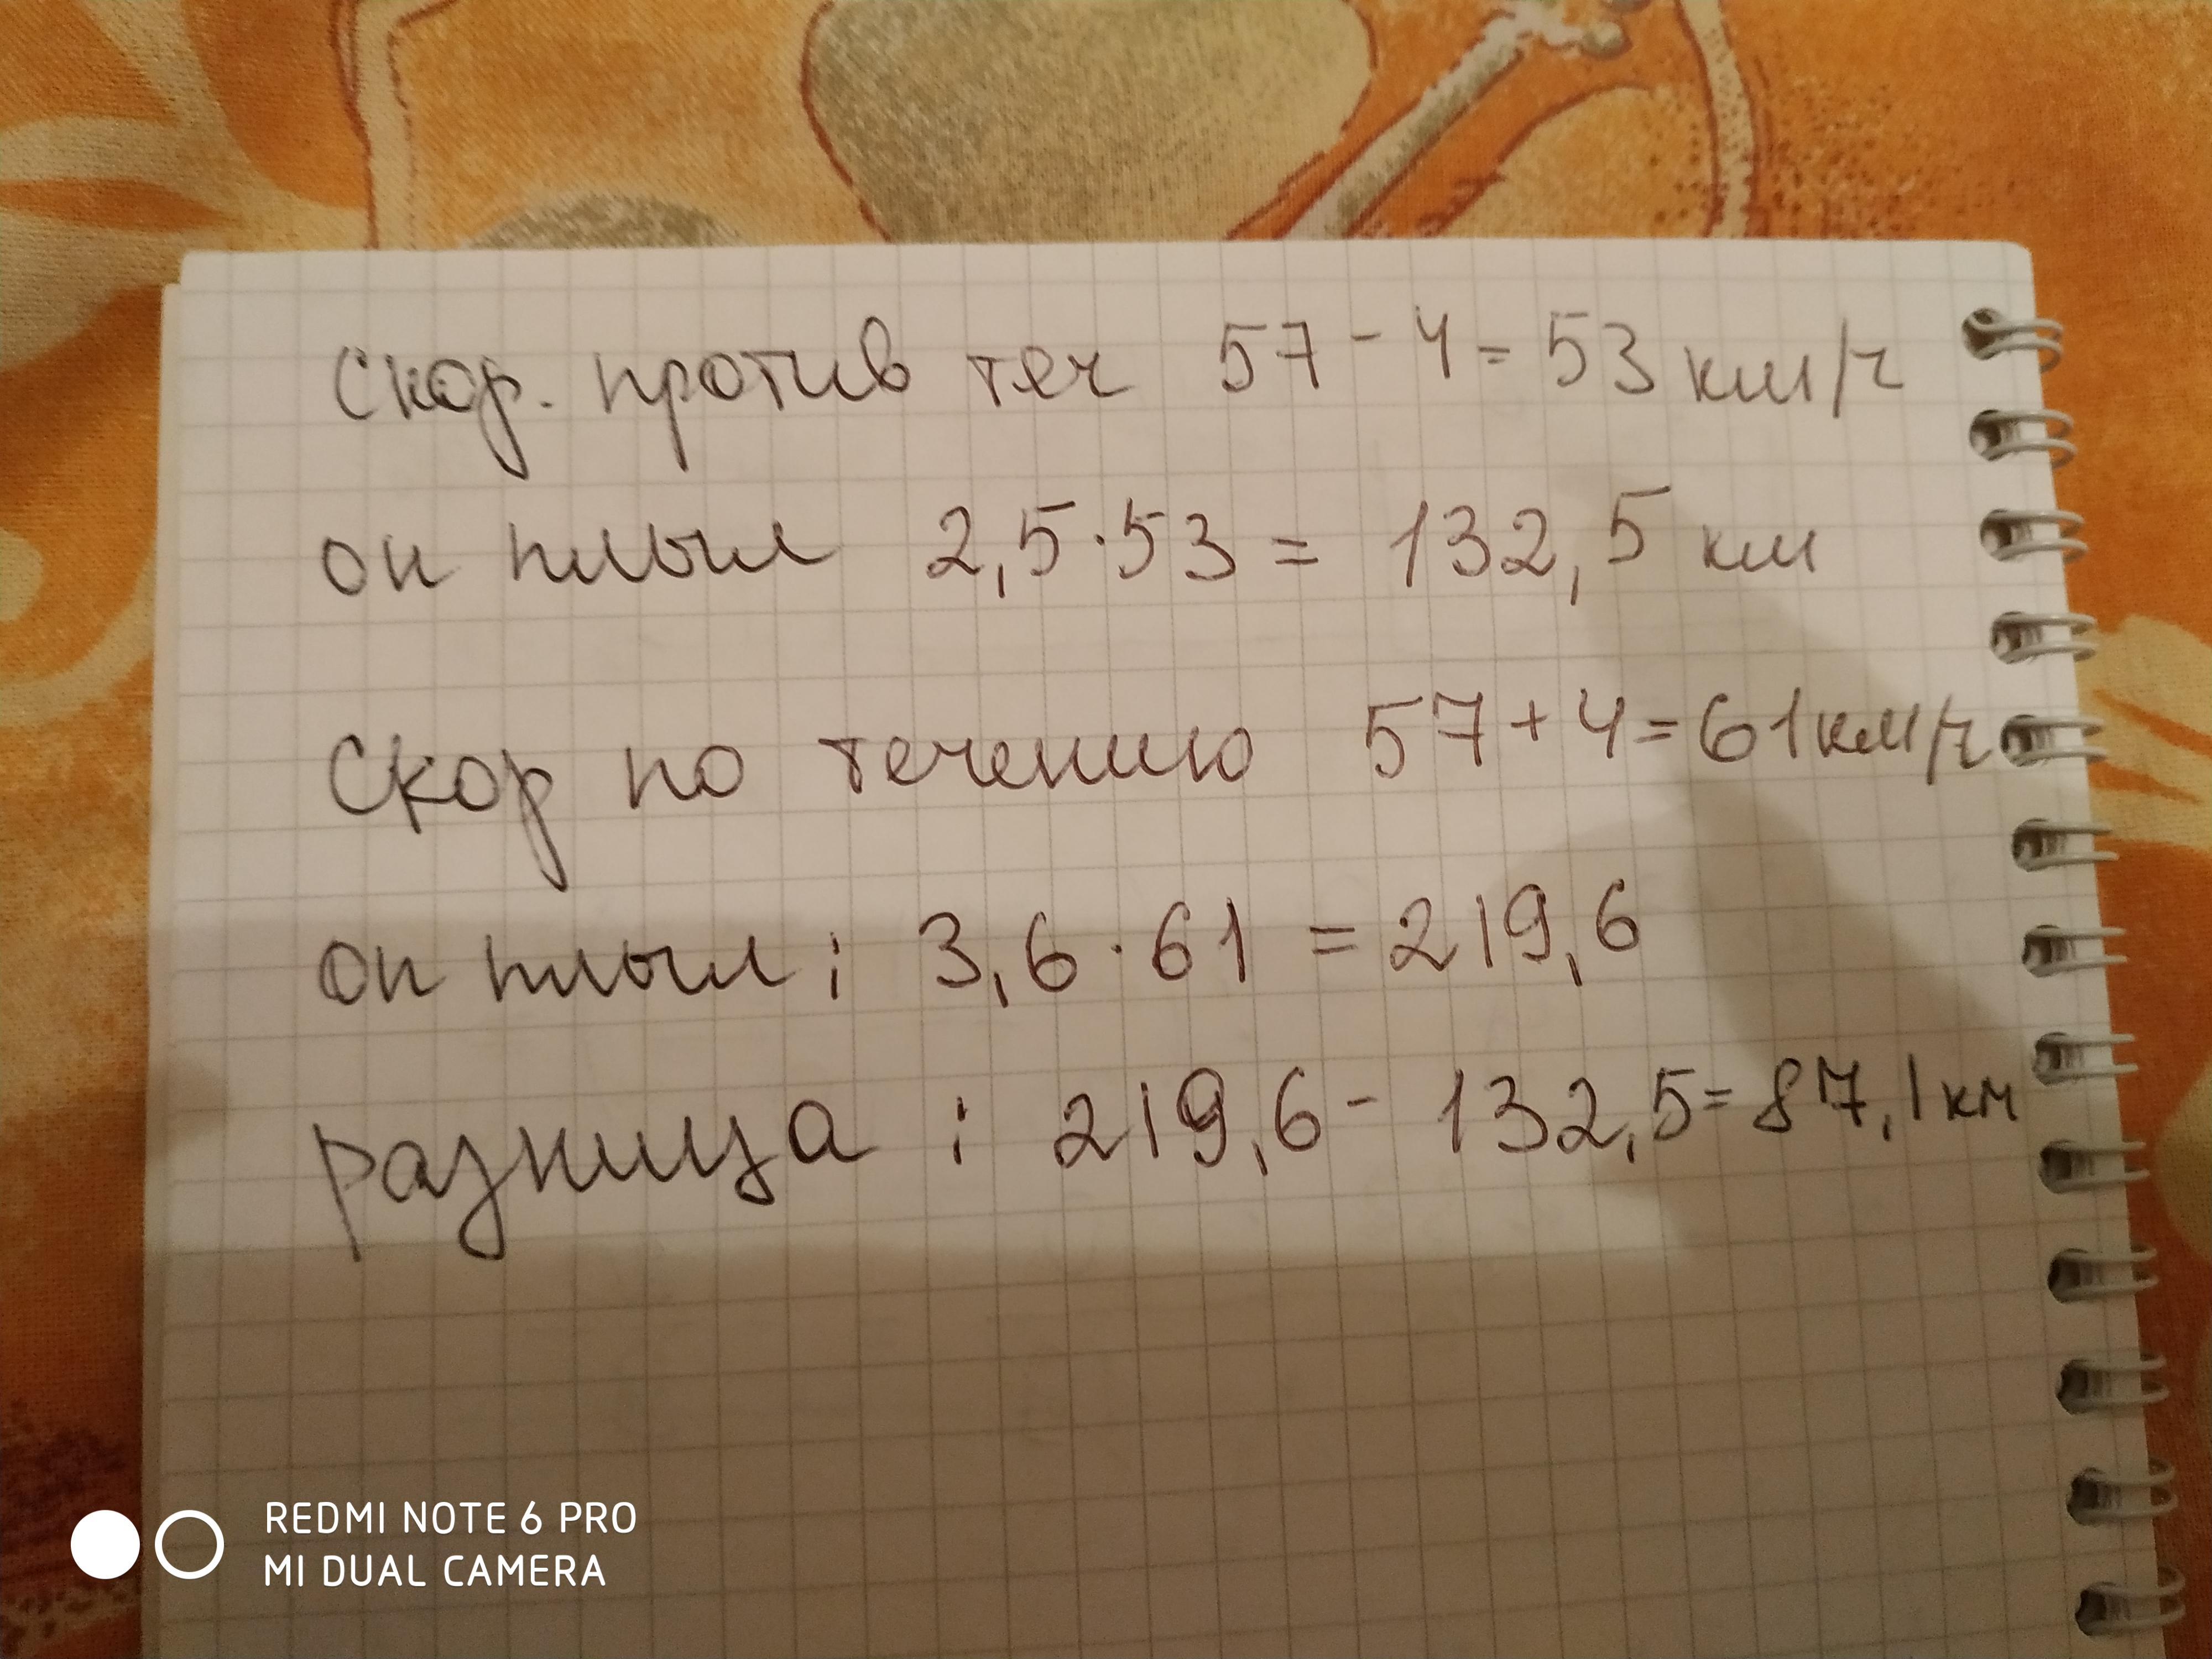 Скор. против теч 57 - 4 = 53 км/ч
он плыл 2,5 · 53 = 132,5 км
Скор по течению 57 + 4 = 61 км/ч
он плыл: 3,6 · 61 = 219,6
разница: 219,6 - 132,5 = 87,1 км
REDMI NOTE 6 PRO
MI DUAL CAMERA